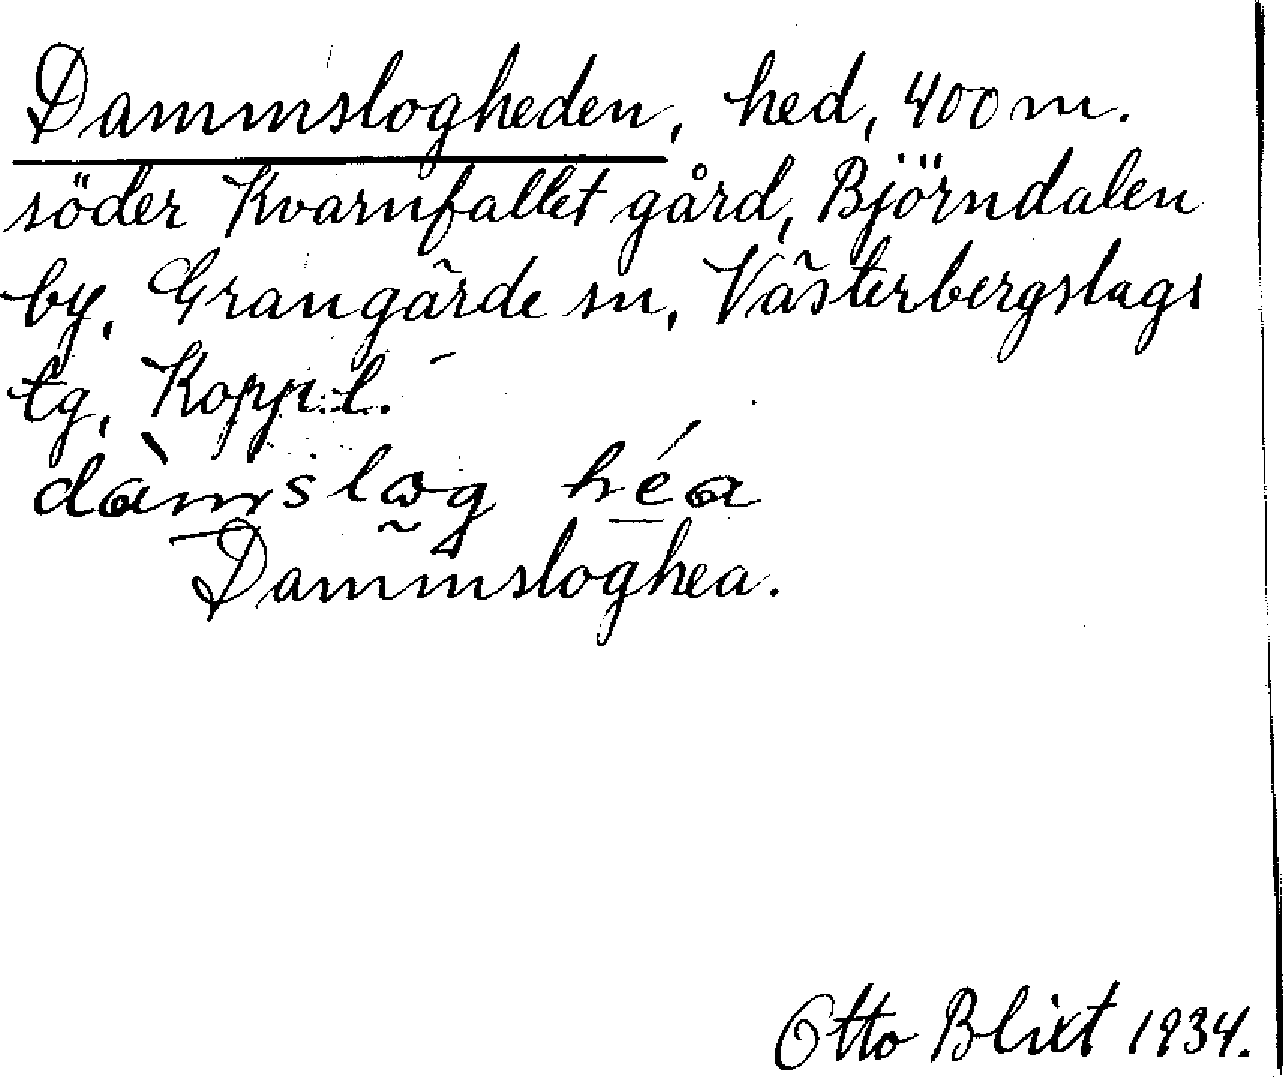 Dammslogheden, hed, 400 m.
söder Kvarnfallet gård, Björndalen
by, Grangärde sn, Västerbergslags
tg, Kopp. l.
dàmslog héa
Dammsloghea.
Otto Blixt 1934.